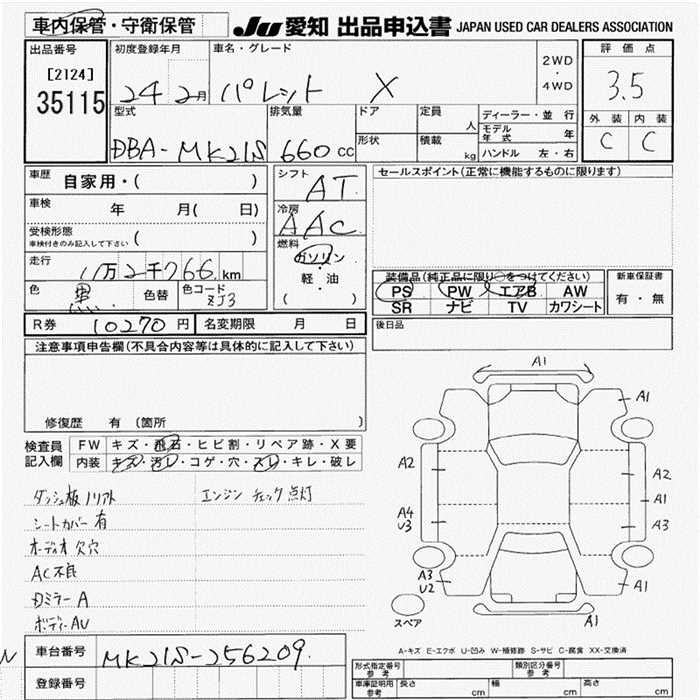 車内保管・守衛保管
JU 愛知 出品申込書 JAPAN USED CAR DEALERS ASSOCIATION
出品番号
[2124]
35115
初度登録年月
24 2月
車名・グレード
パレット X
2WD
・
4WD
評価点
3.5
外装 内装
C C
型式
DBA-MK21S
排気量
660 cc
ドア
形状
定員
人
積載
kg
ディーラー・並行
モデル年式 年
ハンドル 左・右
車歴 自家用・( )
車検 年 月( 日)
受検形態
車検付きのみ記入して下さい ( )
走行
11万2千766 km
色 黒 色替
色コード
ZJ3
シフト
AT
冷房
AAC
燃料
ガソリン
・
軽・油
( )
セールスポイント(正常に機能するものに限ります)
装備品(純正品に限り○をつけてください)
PS PW エアB AW
SR ナビ TV カワシート
新車保証書
有・無
後日品
R券 10270 円 名変期限 月 日
注意事項申告欄(不具合内容等は具体的に記入して下さい)
修復歴 有 (箇所 )
検査員
記入欄
FW キズ・飛石・ヒビ割・リペア跡・X要
内装 キズ・汚レ・コゲ・穴・スレ・キレ・破レ
ダッシュ板ノリアト
エンジンチェック点灯
シートカバー有
オーディオ欠穴
AC不良
Dミラー A
ボディーAU
A1
A1
A2
A2
A1
A4
U3
A3
A3
U2
A1
A1
スペア
A-キズ E-エクボ U-凹み W-補修跡 S-サビ C-腐食 XX-交換済
N
車台番号 MK21S-256209
登録番号
形式指定番号
参考
類別区分番号
参考
車庫証明用
参考
長さ cm
幅 cm
高さ cm